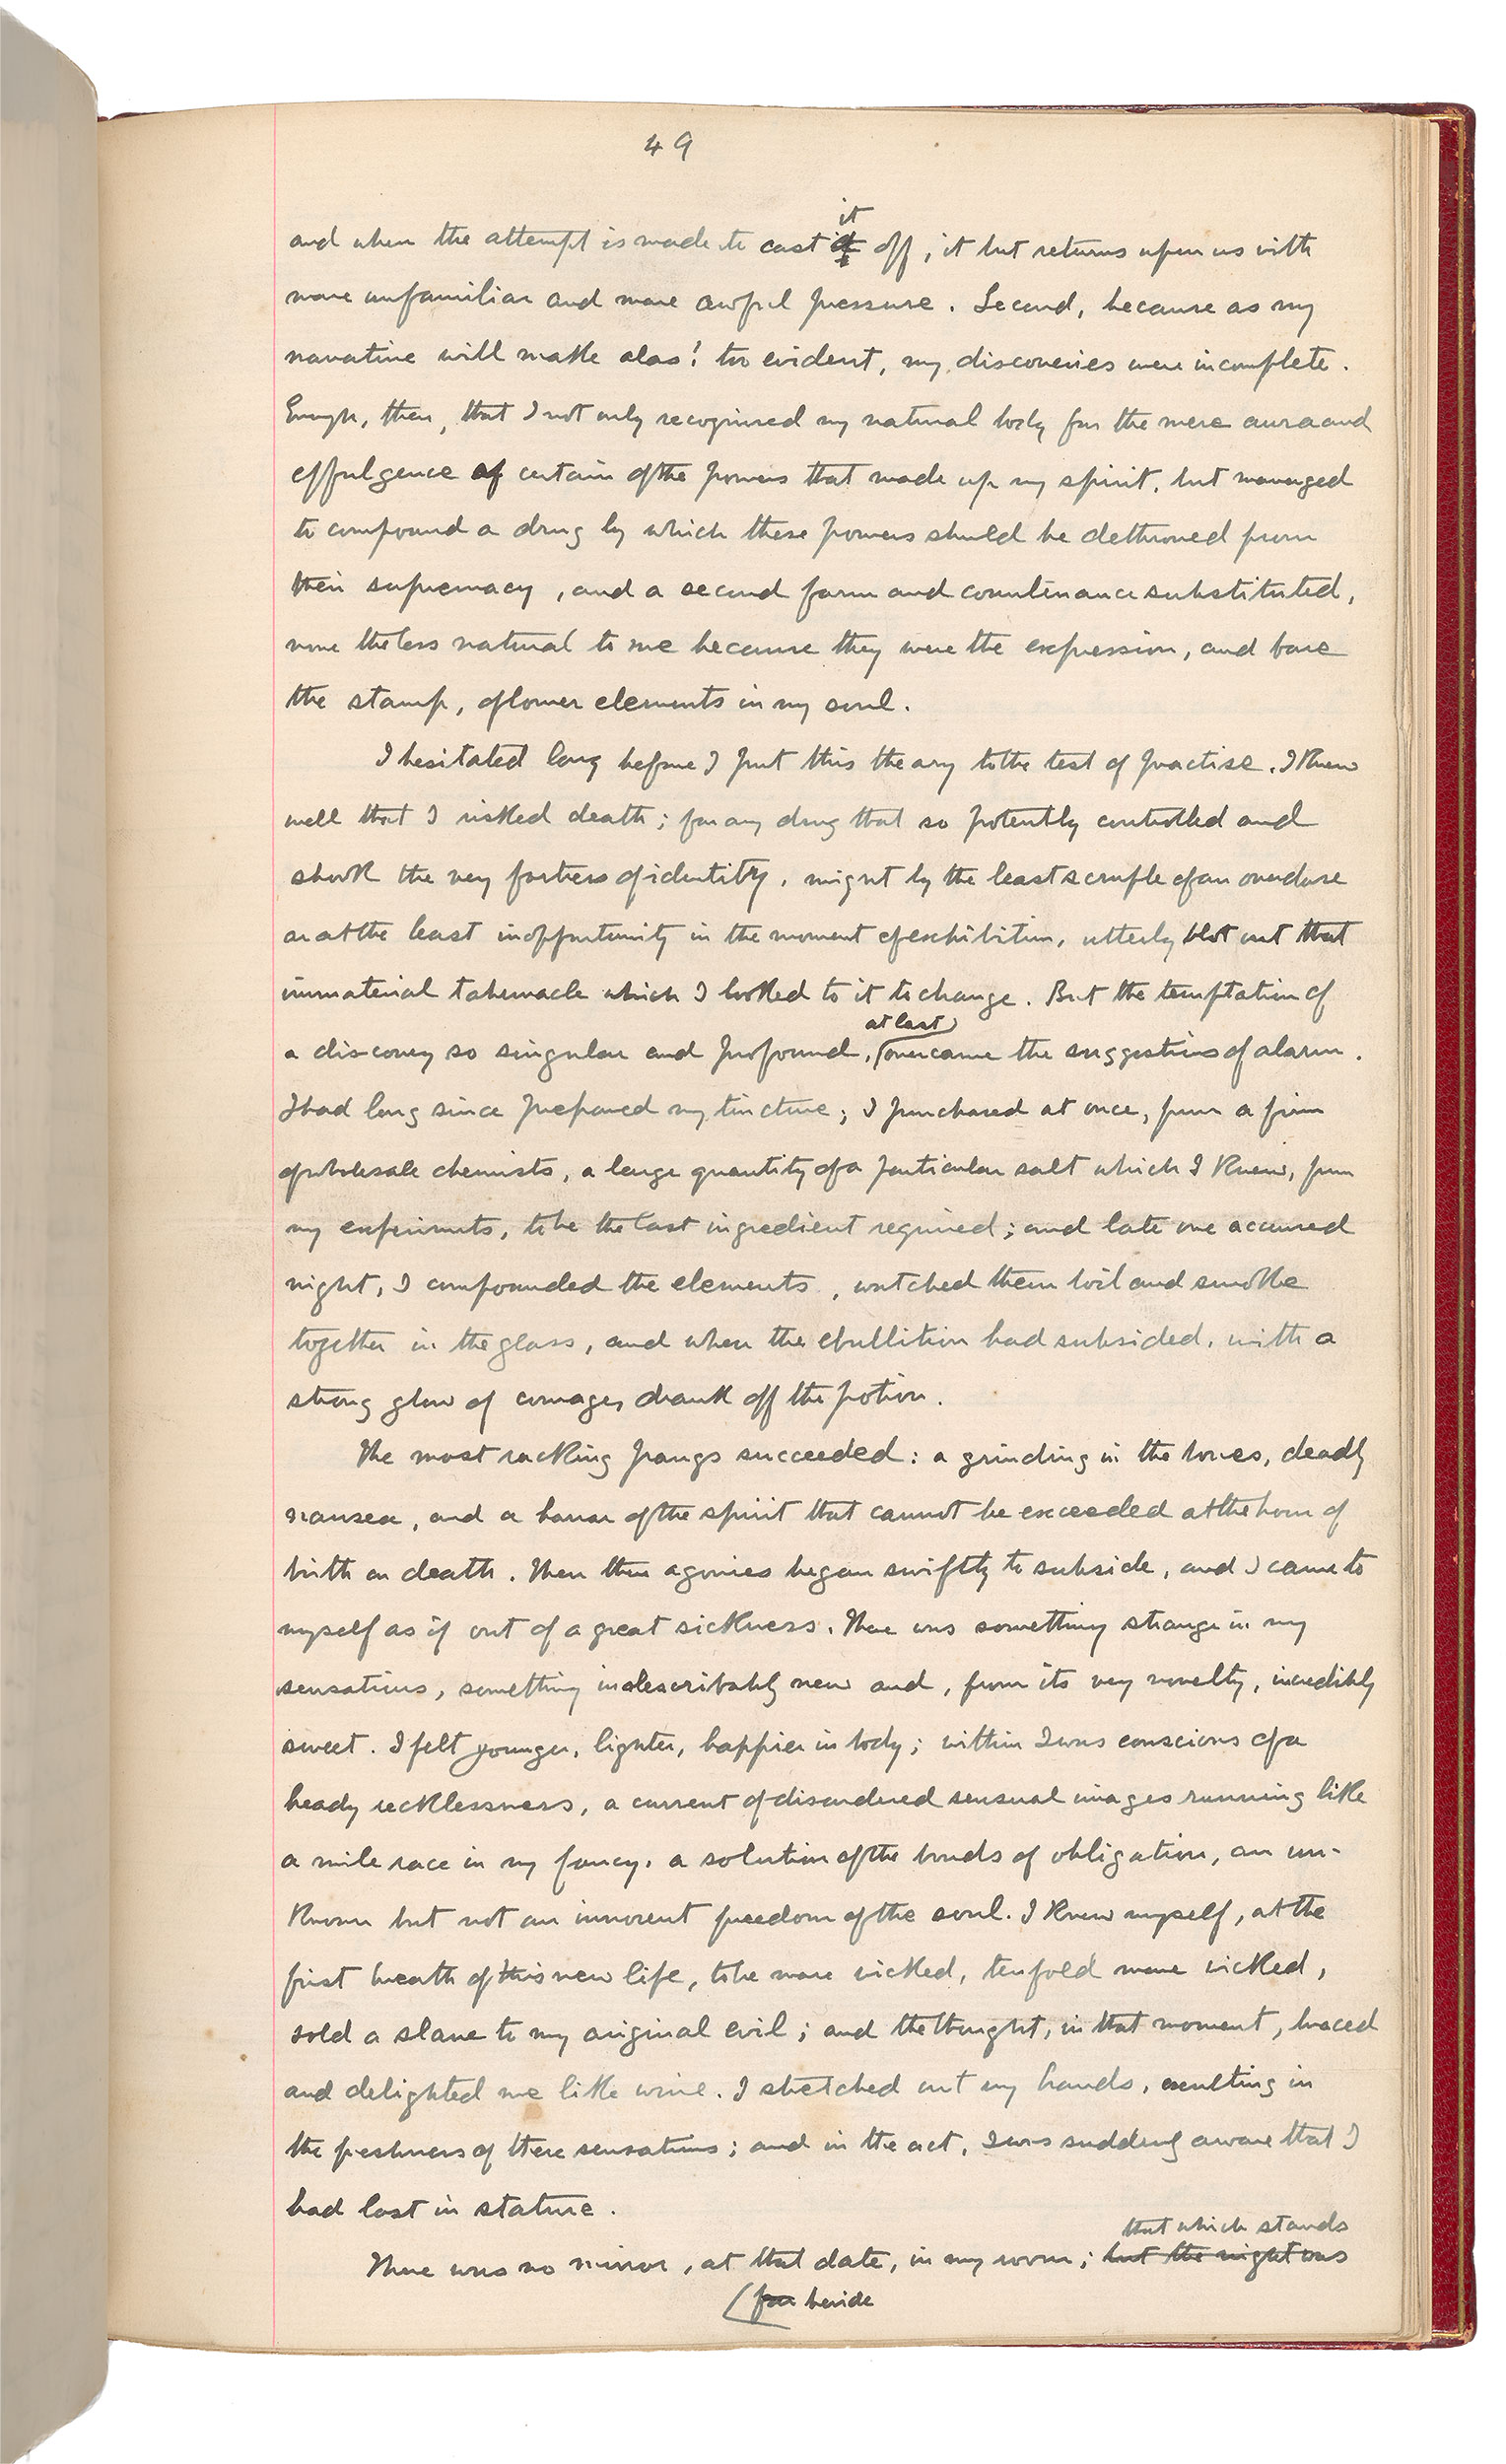 49
it
and when the attempt is made to cast it off, it but returns upon us with
more unfamiliar and more awful pressure. Second, because as my
narrative will make alas! too evident, my discoveries were incomplete.
Enough, then, that I not only recognised my natural body for the mere aura and
effulgence of certain of the powers that made up my spirit, but managed
to compound a drug by which these powers should be dethroned from
their supremacy, and a second form and countenance substituted,
none the less natural to me because they were the expression, and bore
the stamp, of lower elements in my soul.
I hesitated long before I put this theory to the test of practise. I knew
well that I risked death; for any drug that so potently controlled and
shook the very fortress of identity, might by the least scruple of an overdose
or at the least inopportunity in the moment of exhibition, utterly blot out that
immaterial tabernacle which I looked to it to change. But the temptation of
at last
a discovery so singular and profound, overcame the suggestions of alarm.
I had long since prepared my tincture; I purchased at once, from a firm
of wholesale chemists, a large quantity of a particular salt which I knew, from
my experiments, to be the last ingredient required; and late one accursed
night, I compounded the elements, watched them boil and smoke
together in the glass, and when the ebullition had subsided, with a
strong glow of courage, drank off the potion.
The most racking pangs succeeded: a grinding in the bones, deadly
nausea, and a horror of the spirit that cannot be exceeded at the hour of
birth or death. Then these agonies began swiftly to subside, and I came to
myself as if out of a great sickness. There was something strange in my
sensations, something indescribably new and, from its very novelty, incredibly
sweet. I felt younger, lighter, happier in body; within I was conscious of a
heady recklessness, a current of disordered sensual images running like
a mile race in my fancy, a solution of the bonds of obligation, an un-
known but not an innocent freedom of the soul. I knew myself, at the
first breath of this new life, to be more wicked, tenfold more wicked,
sold a slave to my original evil; and the thought, in that moment, braced
and delighted me like wine. I stretched out my hands, exulting in
the freshness of these sensations; and in the act, I was suddenly aware that I
had lost in stature.
that which stands
There was no mirror, at that date, in my room; but the night was
for beside